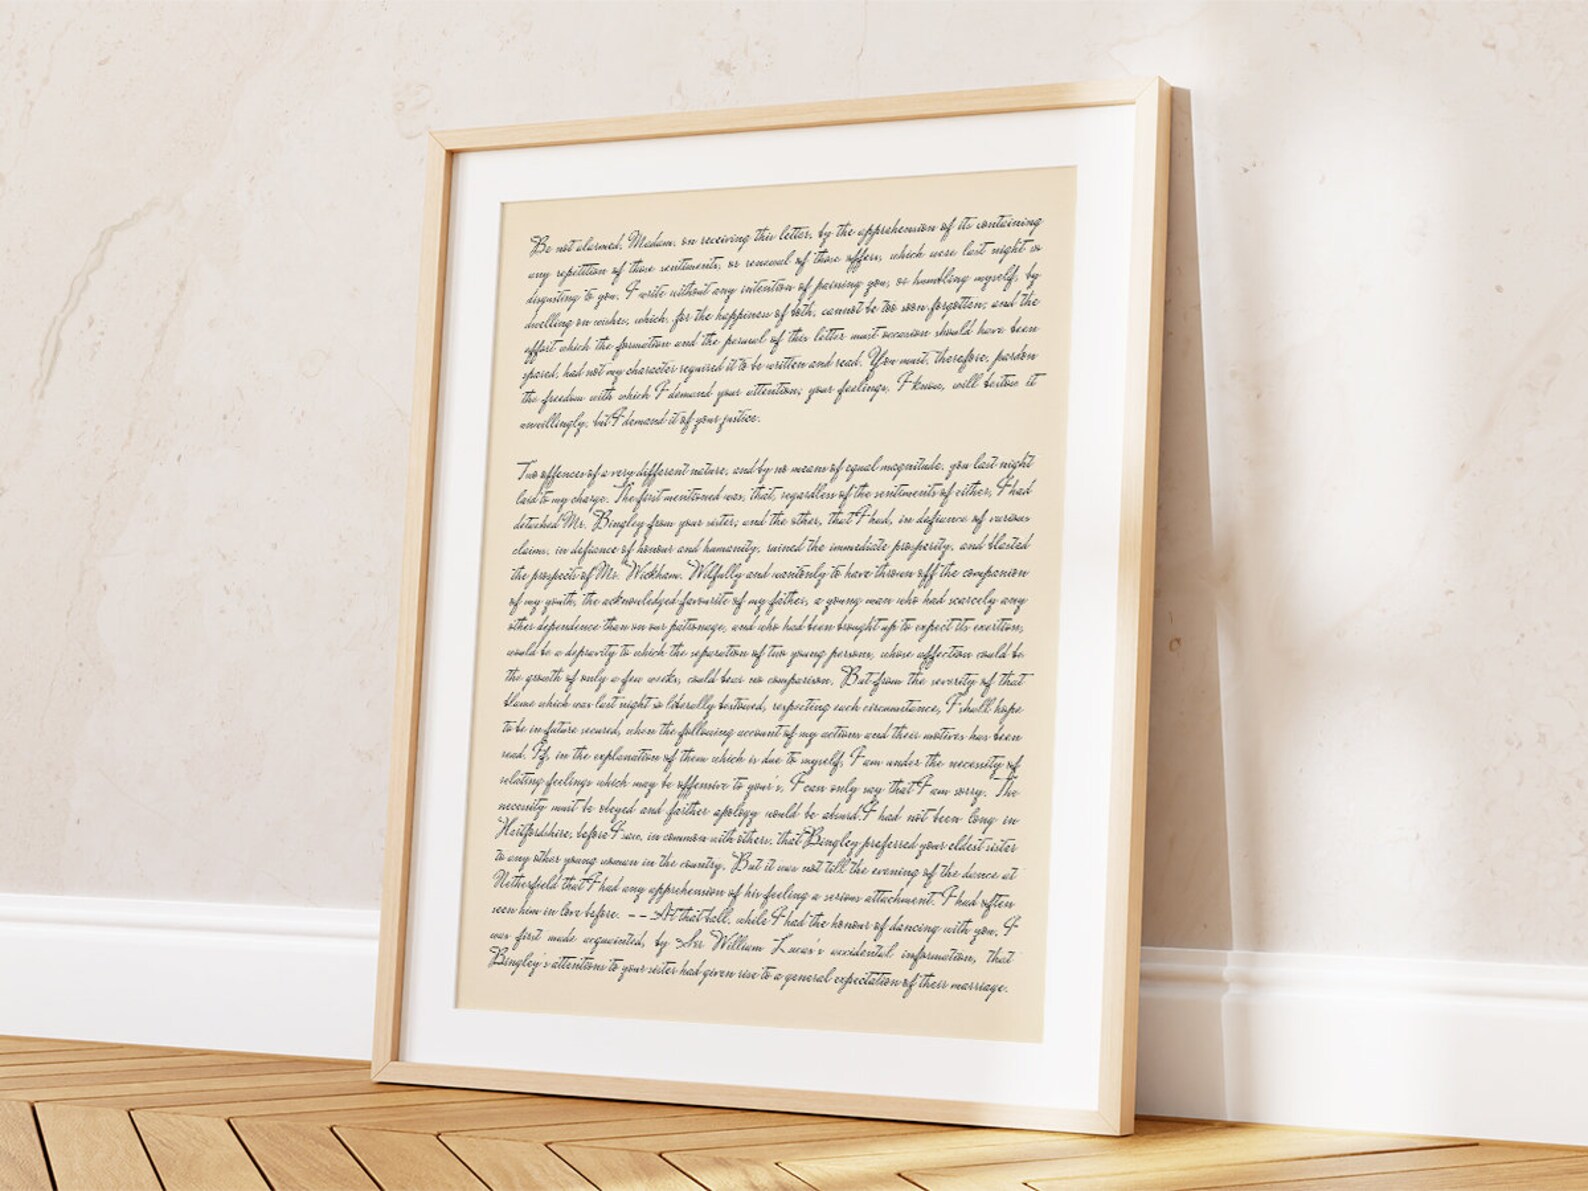 Be not alarmed, Madam, on receiving this letter, by the apprehension of its containing
any repetition of those sentiments, or renewal of those offers, which were last night so
disgusting to you. I write without any intention of paining you, or humbling myself, by
dwelling on wishes, which, for the happiness of both, cannot be too soon forgotten; and the
effort which the formation and the perusal of this letter must occasion should have been
spared, had not my character required it to be written and read. You must, therefore, pardon
the freedom with which I demand your attention; your feelings, I know, will bestow it
unwillingly, but I demand it of your justice.
Two offences of a very different nature, and by no means of equal magnitude, you last night
laid to my charge. The first mentioned was, that, regardless of the sentiments of either, I had
detached Mr. Bingley from your sister; and the other, that I had, in defiance of various
claims, in defiance of honour and humanity, ruined the immediate prosperity, and blasted
the prospects of Mr. Wickham. Wilfully and wantonly to have thrown off the companion
of my youth, the acknowledged favourite of my father, a young man who had scarcely any
other dependence than on our patronage, and who had been brought up to expect its exertion,
would be a depravity to which the separation of two young persons, whose affection could be
the growth of only a few weeks, could bear no comparison. But from the severity of that
blame which was last night so liberally bestowed, respecting each circumstance, I shall hope
to be in future secured, when the following account of my actions and their motives has been
read. If, in the explanation of them which is due to myself, I am under the necessity of
relating feelings which may be offensive to your's, I can only say that I am sorry. The
necessity must be obeyed and farther apology would be absurd. I had not been long in
Hertfordshire, before I saw, in common with others, that Bingley preferred your eldest sister
to any other young woman in the country. But it was not till the evening of the dance at
Netherfield that I had any apprehension of his feeling a serious attachment. I had often
seen him in love before. -- At that ball, while I had the honour of dancing with you, I
was first made acquainted, by Sir William Lucas's accidental information, that
Bingley's attentions to your sister had given rise to a general expectation of their marriage.